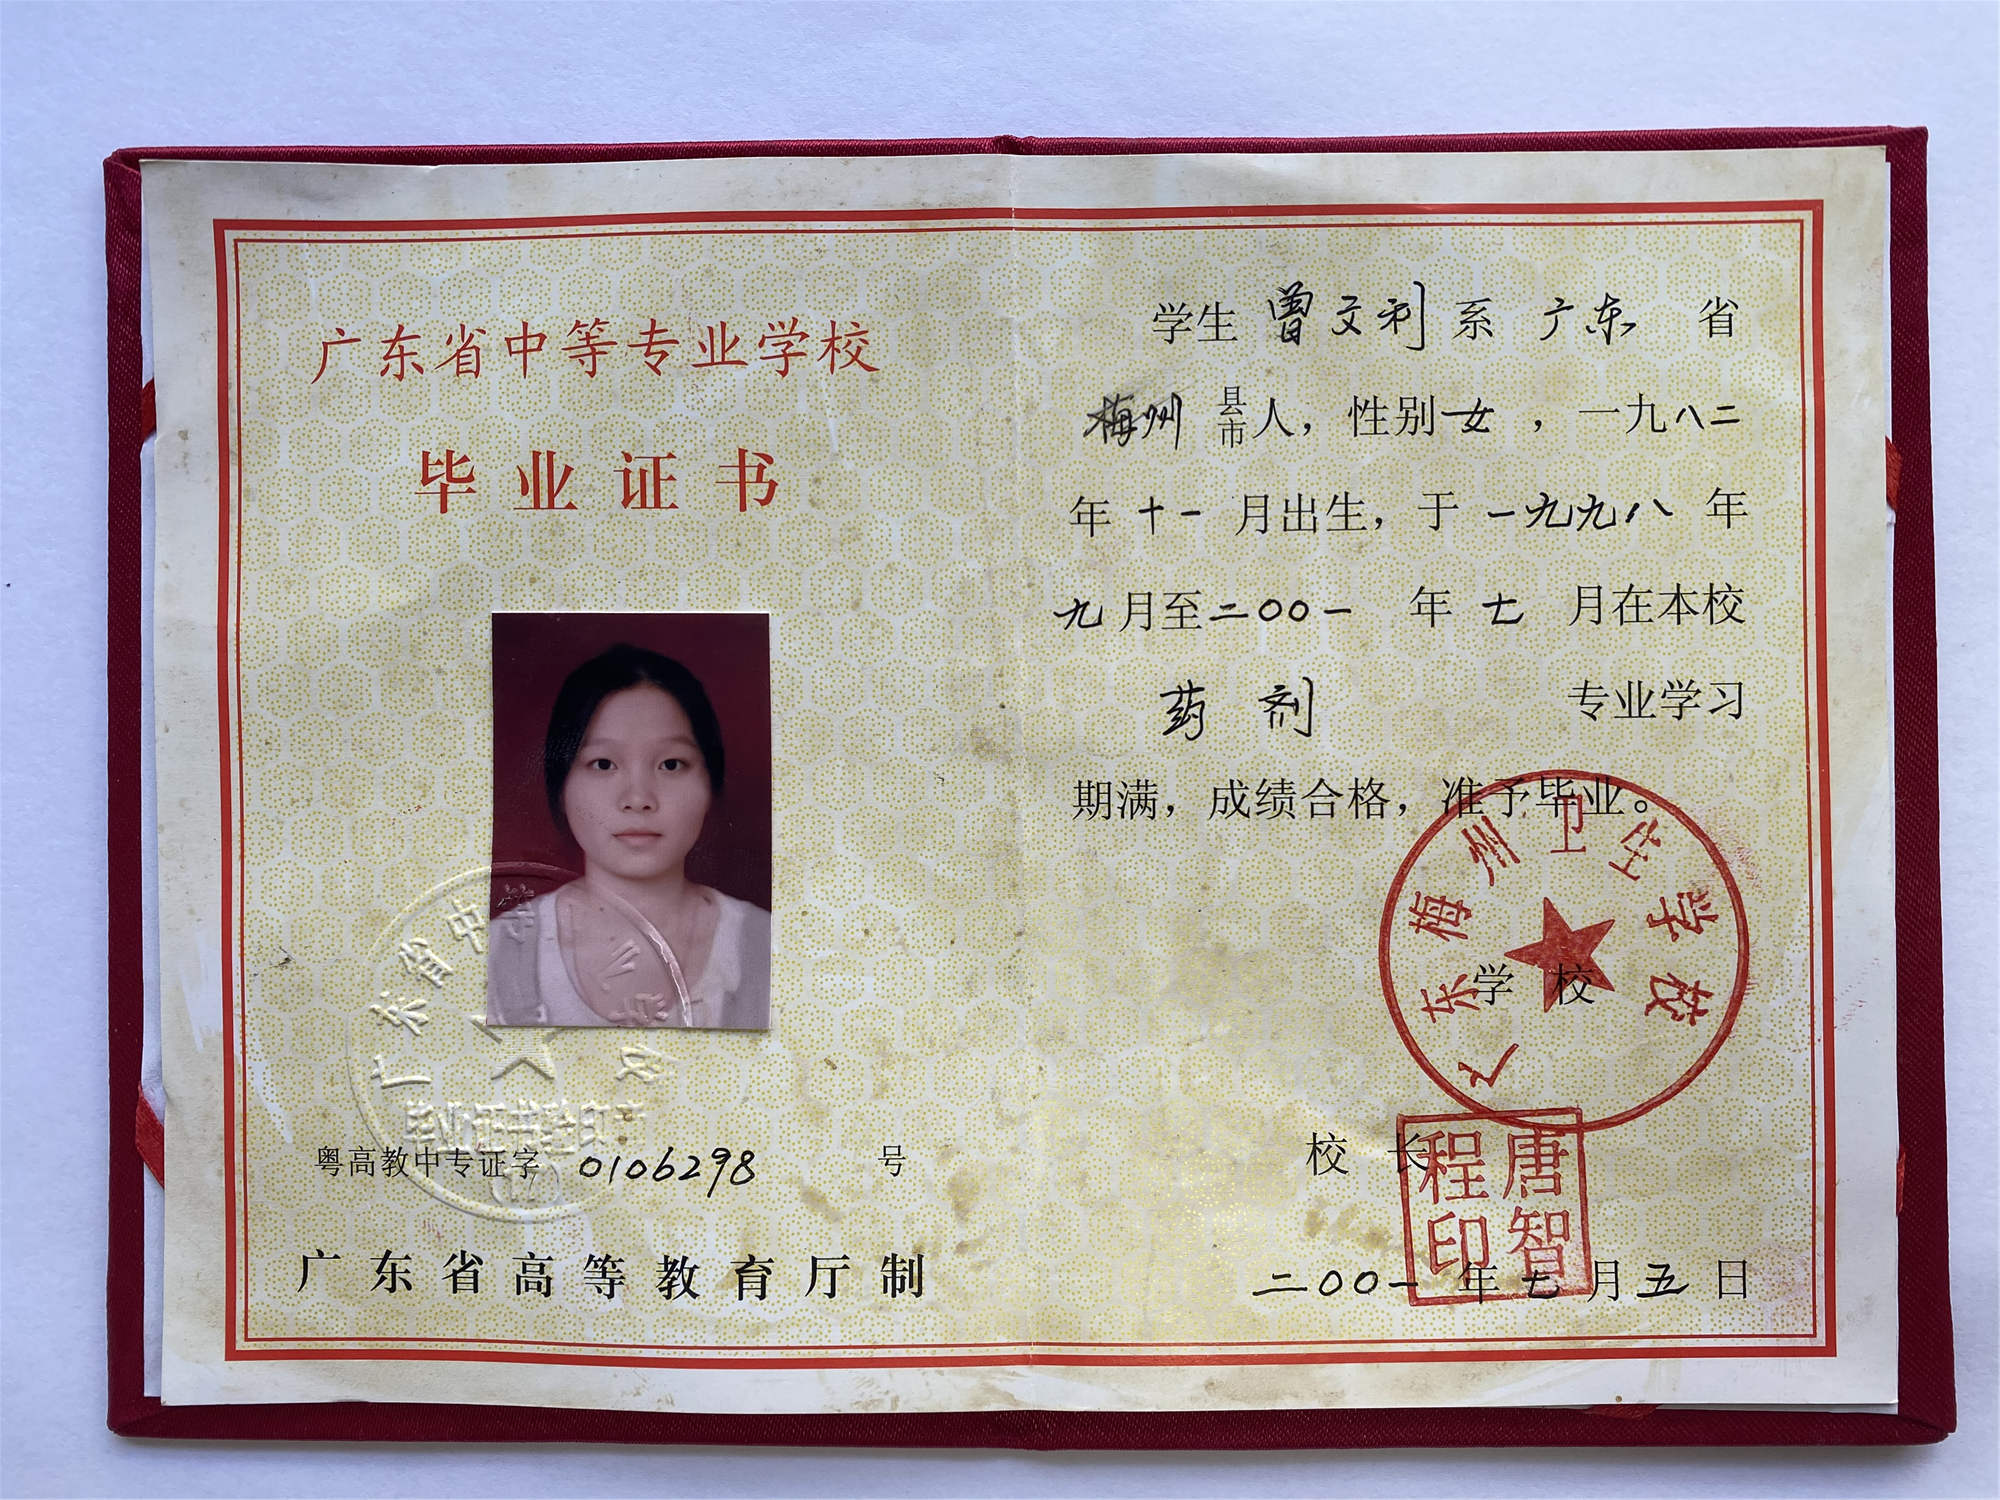 广东省中等专业学校
毕业证书
广东省中等专业学校
毕业证书验印章
粤高教中专证字 0106298 号
广东省高等教育厅制
学生 曾文利 系 广东 省
梅州 县市人，性别女，一九八二
年 十一 月出生，于 一九九八 年
九月至二〇〇一 年 七 月在本校
药剂 专业学习
期满，成绩合格，准予毕业。
广东梅州卫生学校
学 校
校 长
唐智程印
二〇〇一 年 七 月 五 日